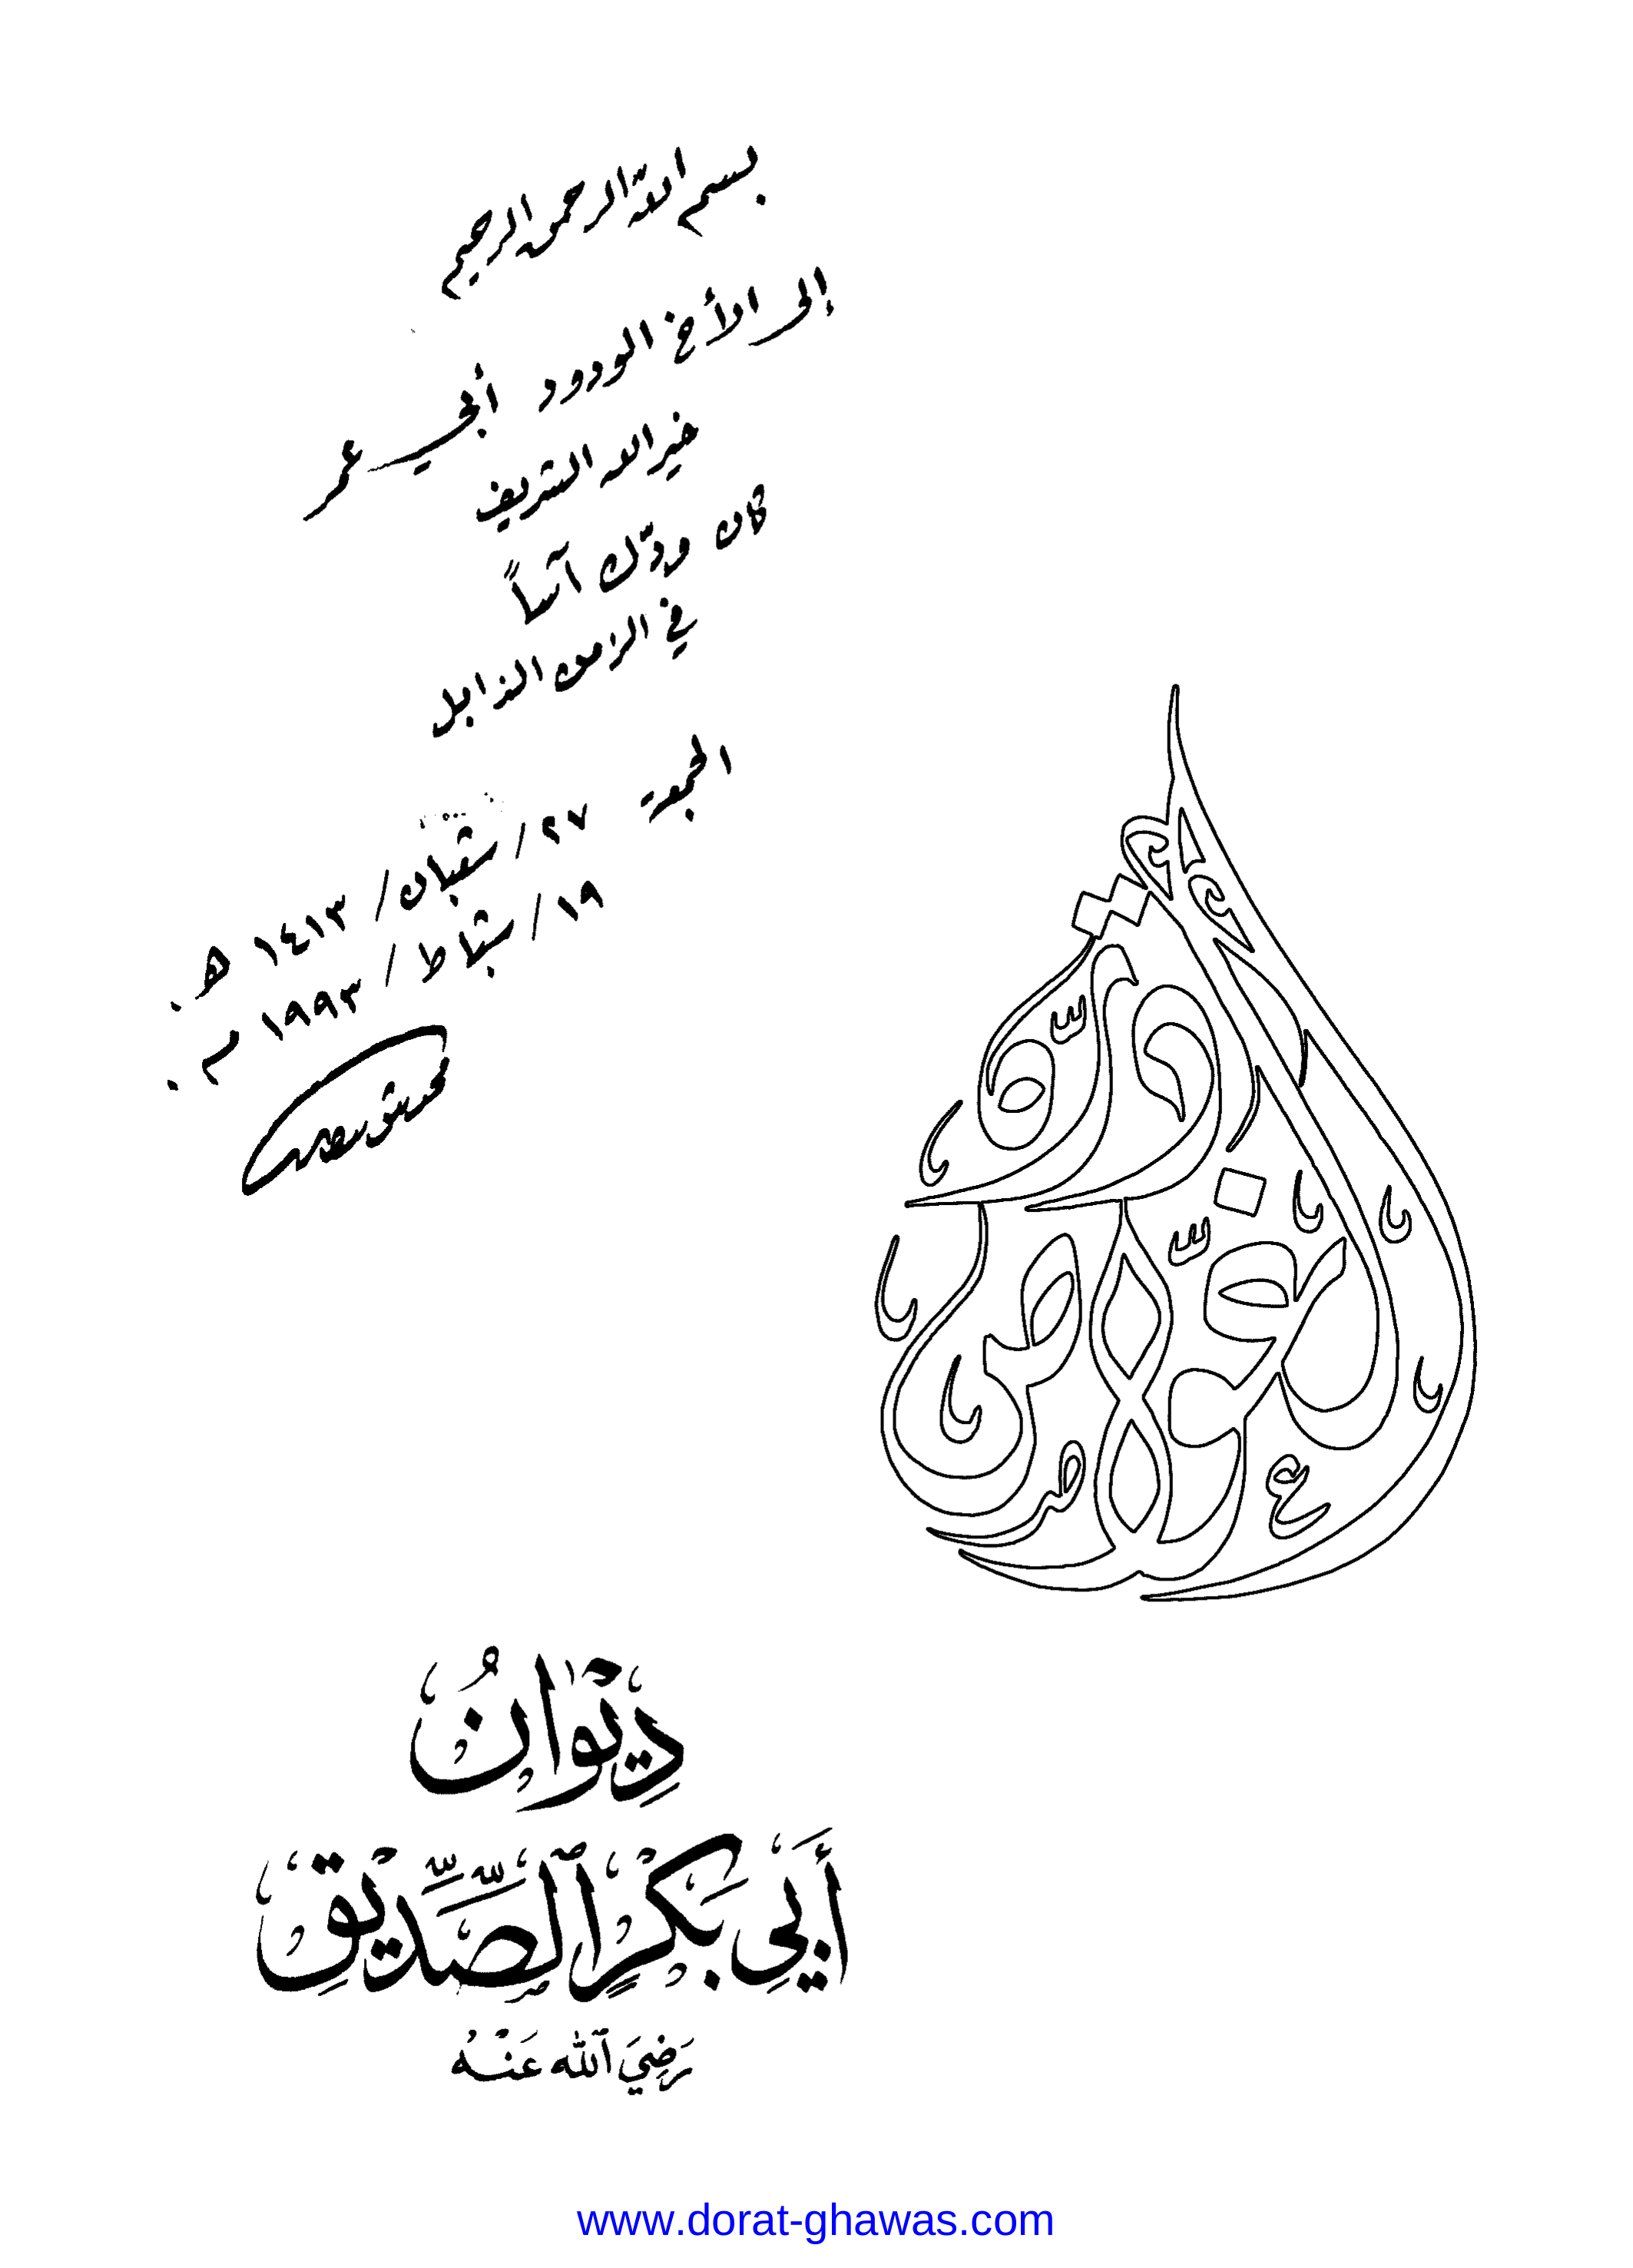 بسم الله الرحمن الرحيم
إلى الأخ الودود أبي عمر
خير الله الشريف
كان ودّك آسًا
في الزمن الذابل
الجمعة ٢٧ / شعبان / ١٤١٣ هـ.
١٩ / شباط / ١٩٩٣ م.
دِيْوَانُ
أَبِيْ بَكْرٍ ٱلصِّدِّيْقِ
رَضِيَ ٱللّٰه عَنْهُ
www.dorat-ghawas.com